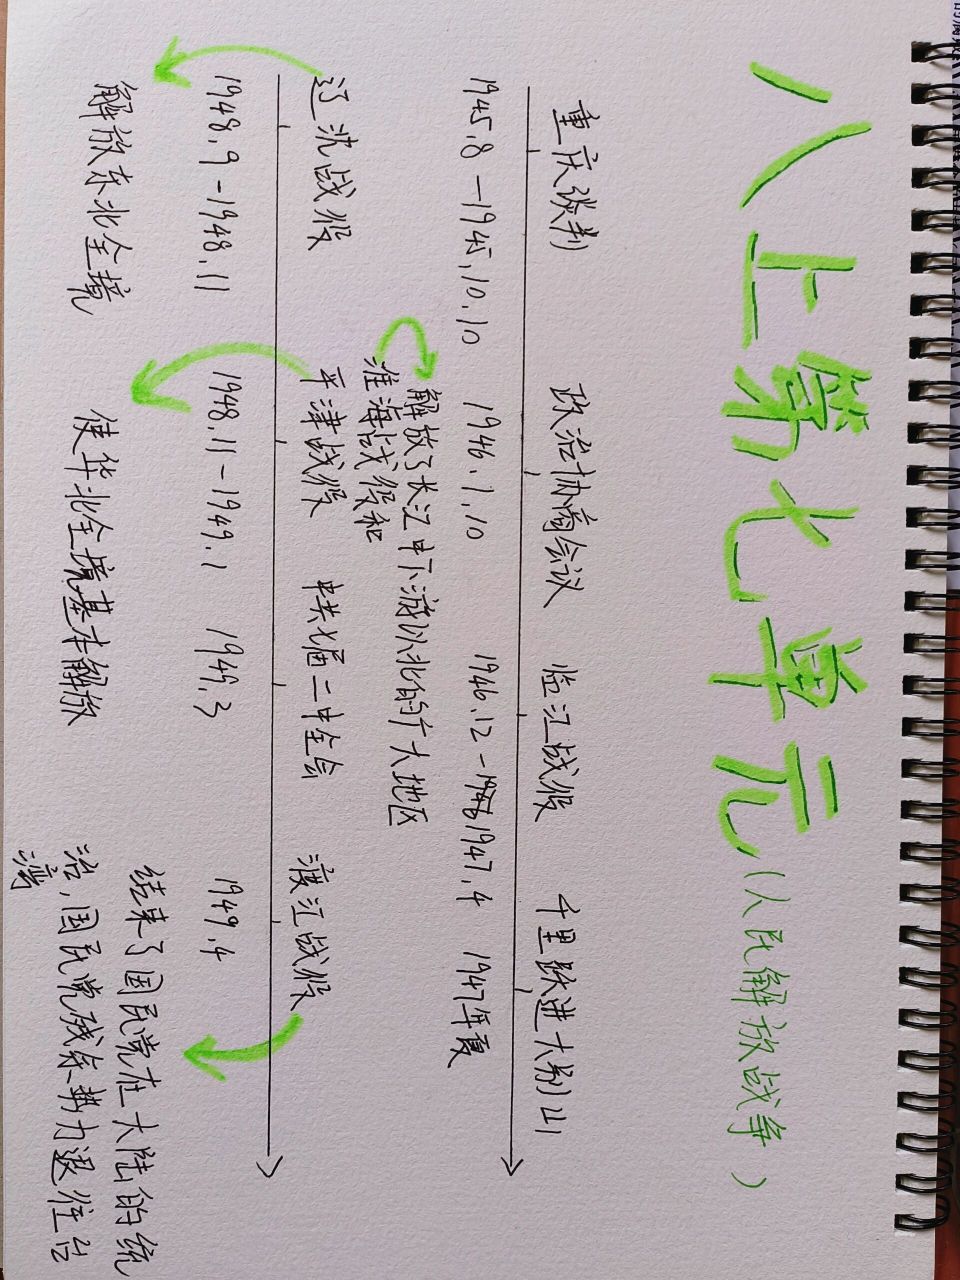 八上第七单元(人民解放战争)
重庆谈判 政治协商会议 临江战役 千里跃进大别山
1945.8-1945.10.10 1946.1.10 1946.12-1947.4 1947年夏
解放了长江中下游以北的广大地区
淮海战役和
辽沈战役 平津战役 中共七届二中全会 渡江战役
1948.9-1948.11 1948.11-1949.1 1949.3 1949.4
解放东北全境 使华北全境基本解放 结束了国民党在大陆的统
治,国民党残余势力退往台
湾